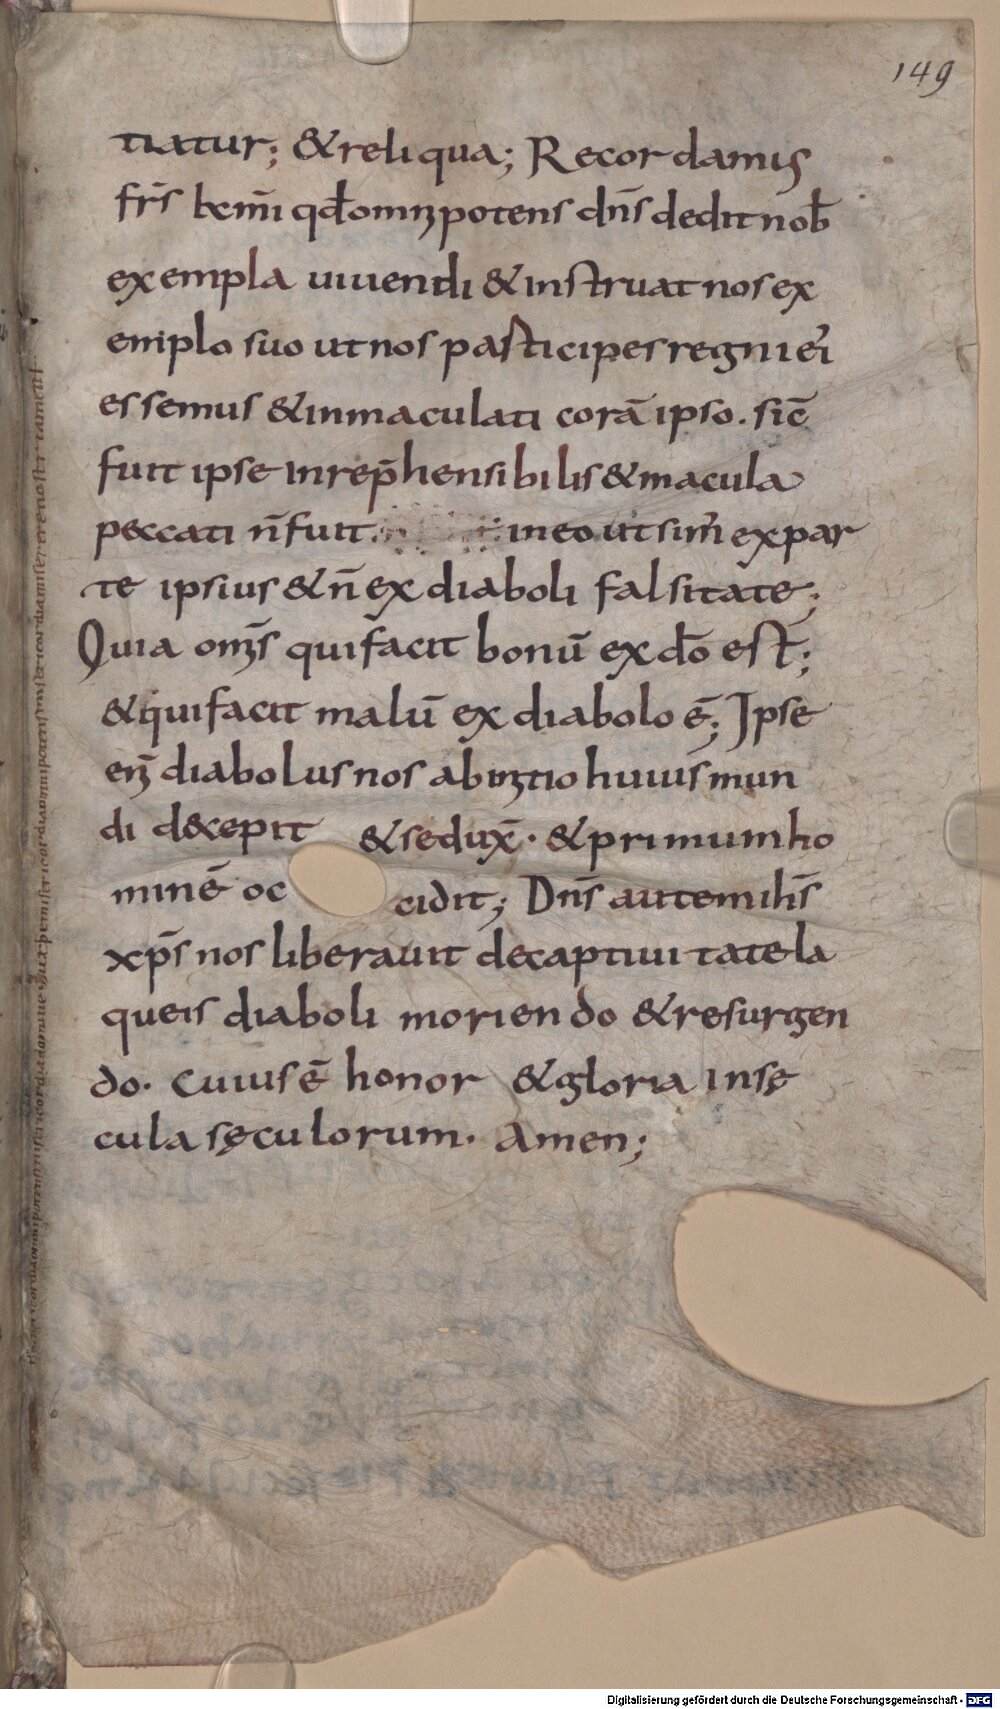 149
tiatur; & reliqua; Recordamus
fr̄s kcm̄i qđ omnipotens dn̄s dedit nob̄
exempla uiuendi & instruat nos ex
emplo suo ut nos pasticipes regni ei
essemus & inmaculati corā ipso. sic̄
fuit ipse inrep̄hensibilis & macula
peccati n̄ fuit in eo ut sim' ex par
te ipsius & n̄ ex diaboli falsitate;
Quia om̄s qui facit bonū ex dō est;
& qui facit malū ex diabolo ē; Ipse
eni diabolus nos ab initio huius mun
di d&cepit & sedux̄. & primum ho
minē oc cidit; Dn̄s autem ih̄s
xp̄s nos liberauit de captiuitate la
queis diaboli moriendo & resurgen
do. Cuius ē honor & gloria in sę
cula sęculorum. Amen;
Digitalisierung gefördert durch die Deutsche Forschungsgemeinschaft - DFG